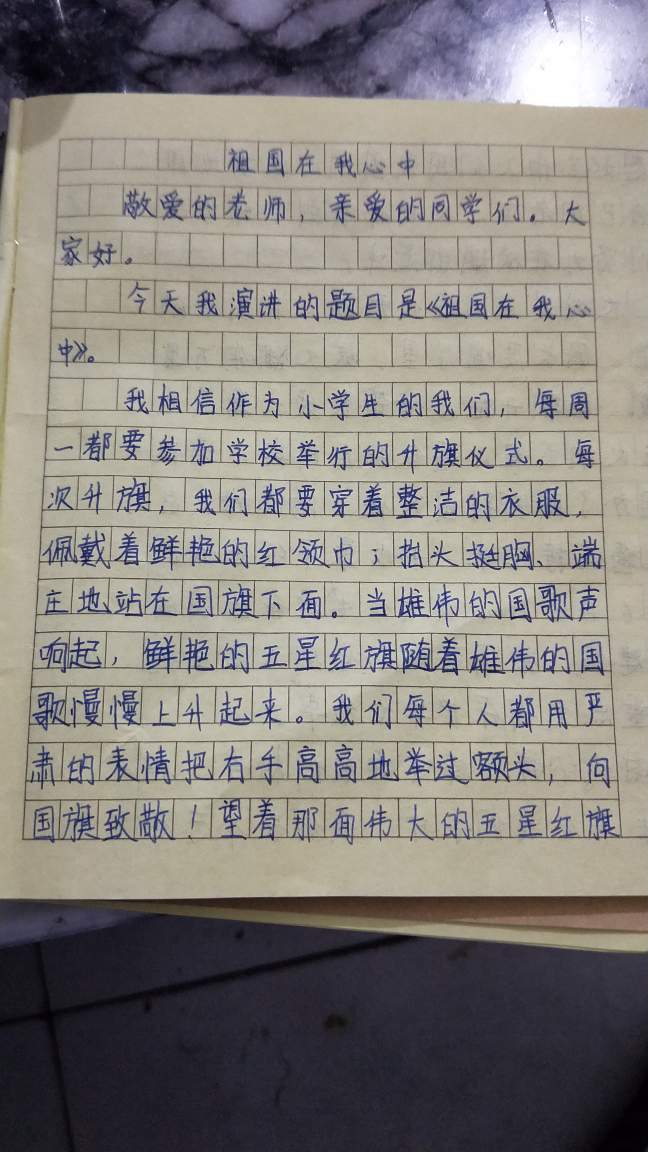 祖国在我心中
敬爱的老师，亲爱的同学们。大
家好。
今天我演讲的题目是《祖国在我心
中》。
我相信作为小学生的我们，每周
一都要参加学校举行的升旗仪式。每
次升旗，我们都要穿着整洁的衣服，
佩戴着鲜艳的红领巾；抬头挺胸、端
庄地站在国旗下面。当雄伟的国歌声
响起，鲜艳的五星红旗随着雄伟的国
歌慢慢上升起来。我们每个人都用严
肃的表情把右手高高地举过额头，向
国旗致敬！望着那面伟大的五星红旗